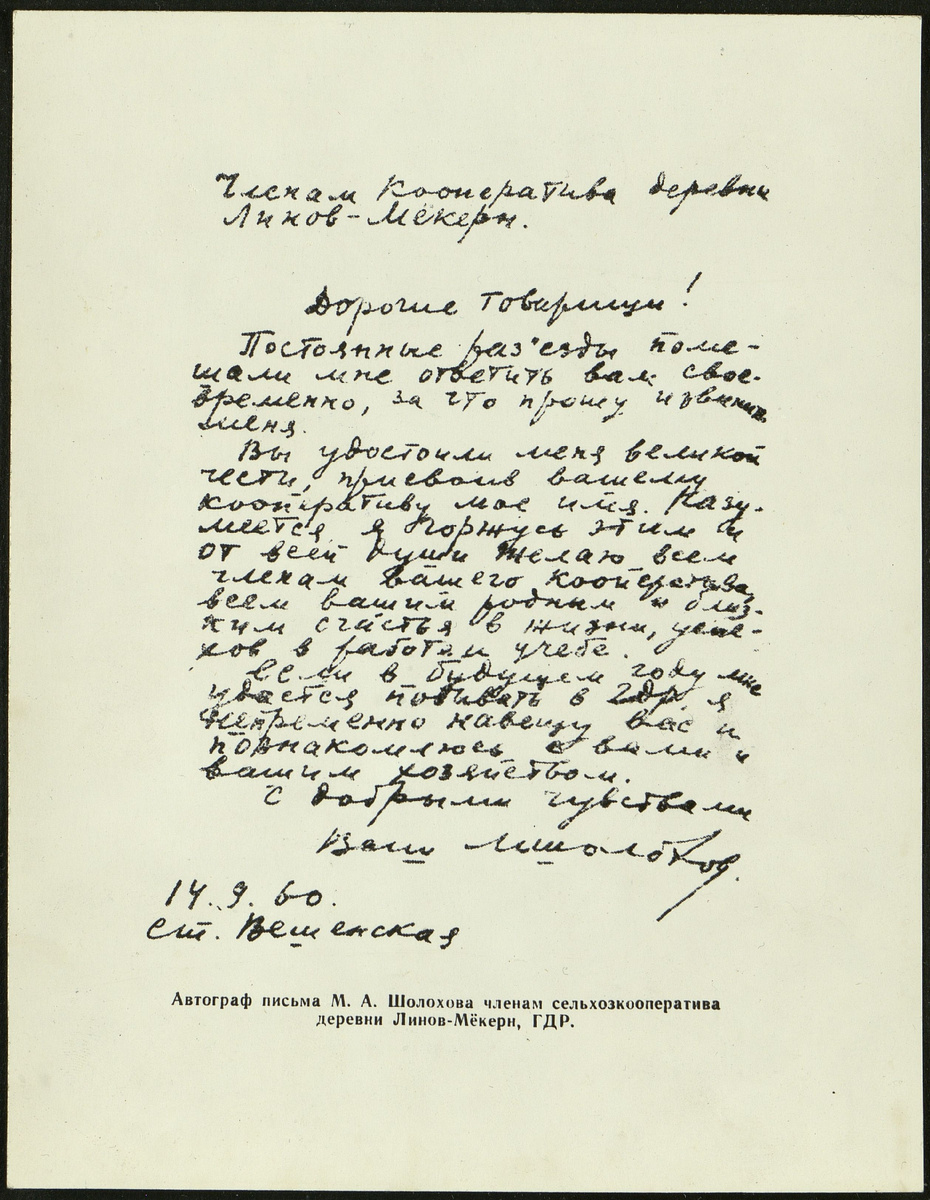 Членам Кооператива деревни
Линов-Мёкерн.
Дорогие товарищи!
Постоянные раз'езды поме-
шали мне ответить вам свое-
временно, за что прошу извинить
меня.
Вы удостоили меня великой
чести, присвоив вашему
кооперативу мое имя. Разу-
меется, я горжусь этим и
от всей души желаю всем
членам вашего кооператива,
всем вашим родным и близ-
ким счастья в жизни, успе-
хов в работе и учебе.
Если в будущем году мне
удастся побывать в ГДР, я
непременно навещу вас и
познакомлюсь с вами и
вашим хозяйством.
С добрыми чувствами
Ваш МШолохов.
14.9.60.
Ст. Вешенская
Автограф письма М. А. Шолохова членам сельхозкооператива
деревни Линов-Мёкерн, ГДР.